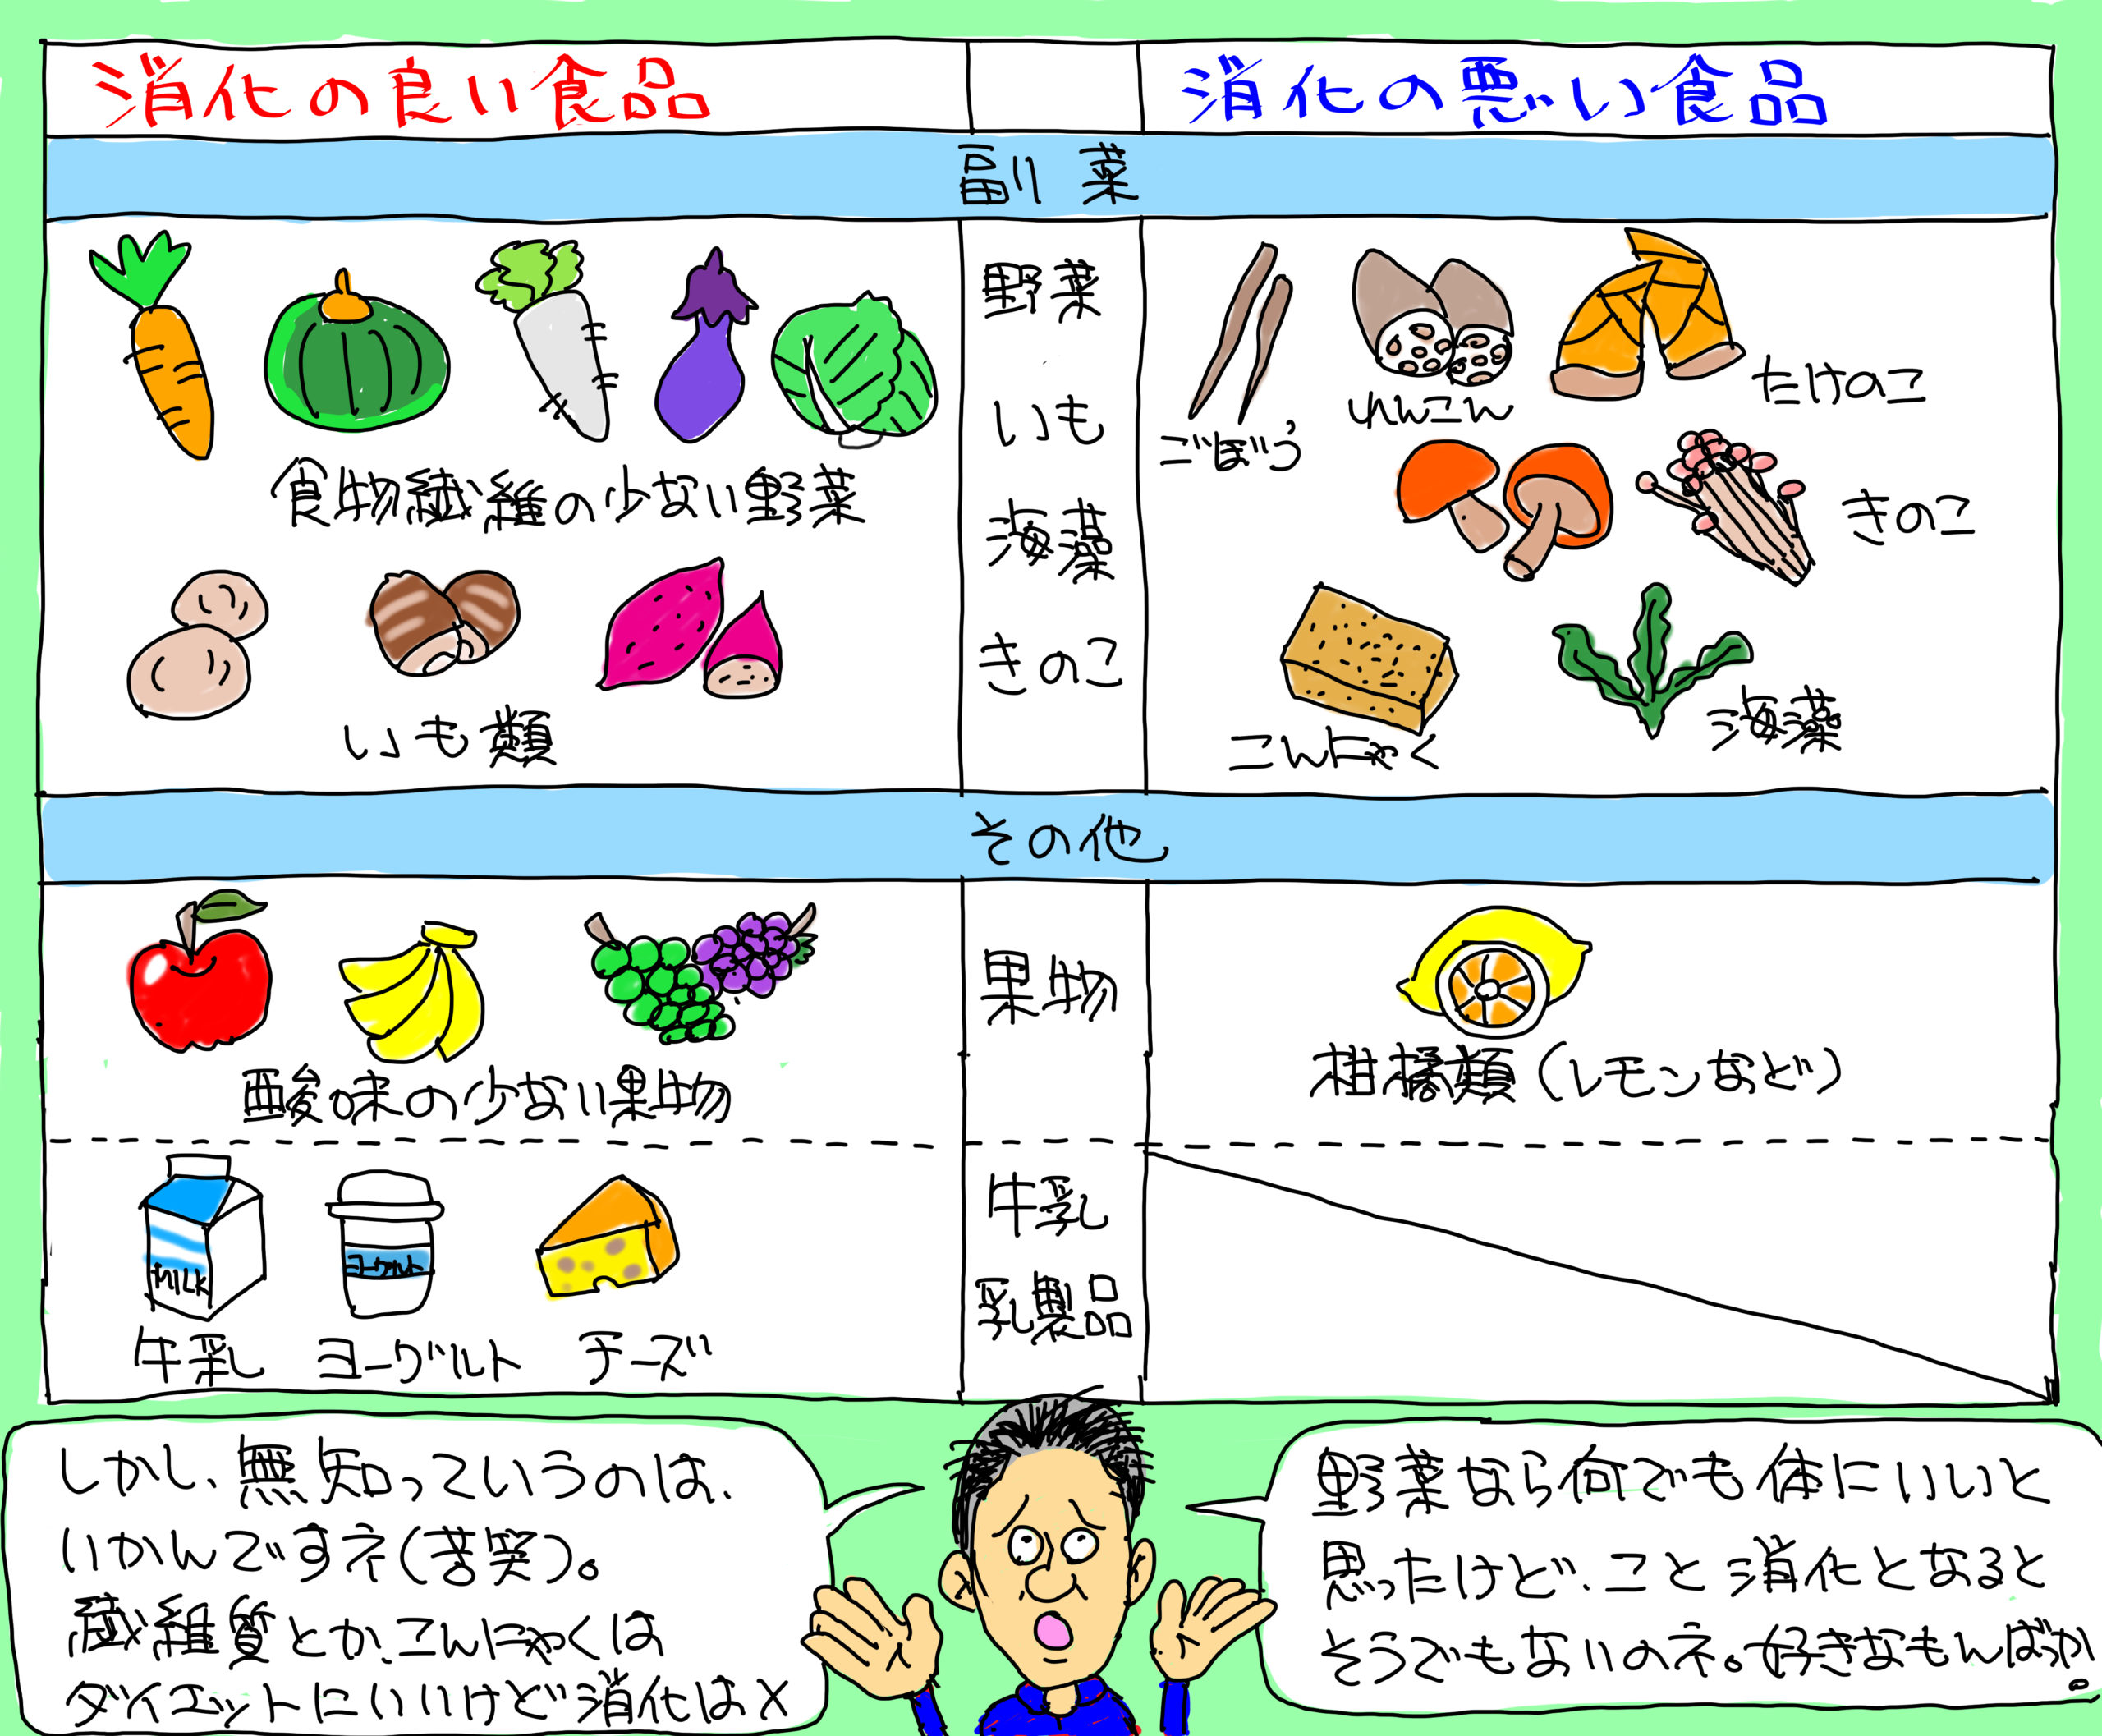 消化の良い食品
消化の悪い食品
副菜
食物繊維の少ない野菜
いも類
野菜
いも
海藻
きのこ
ごぼう
れんこん
たけのこ
きのこ
こんにゃく
海藻
その他
酸味の少ない果物
果物
柑橘類(レモンなど)
MILK
ヨーグルト
牛乳
ヨーグルト
チーズ
牛乳
乳製品
野菜なら何でも体にいいと
思ったけど、こと消化となると
そうでもないのネ。好きなもんばっか。
しかし、無知っていうのは、
いかんですネ(苦笑)。
繊維質とか、こんにゃくは
ダイエットにいいけど消化は×